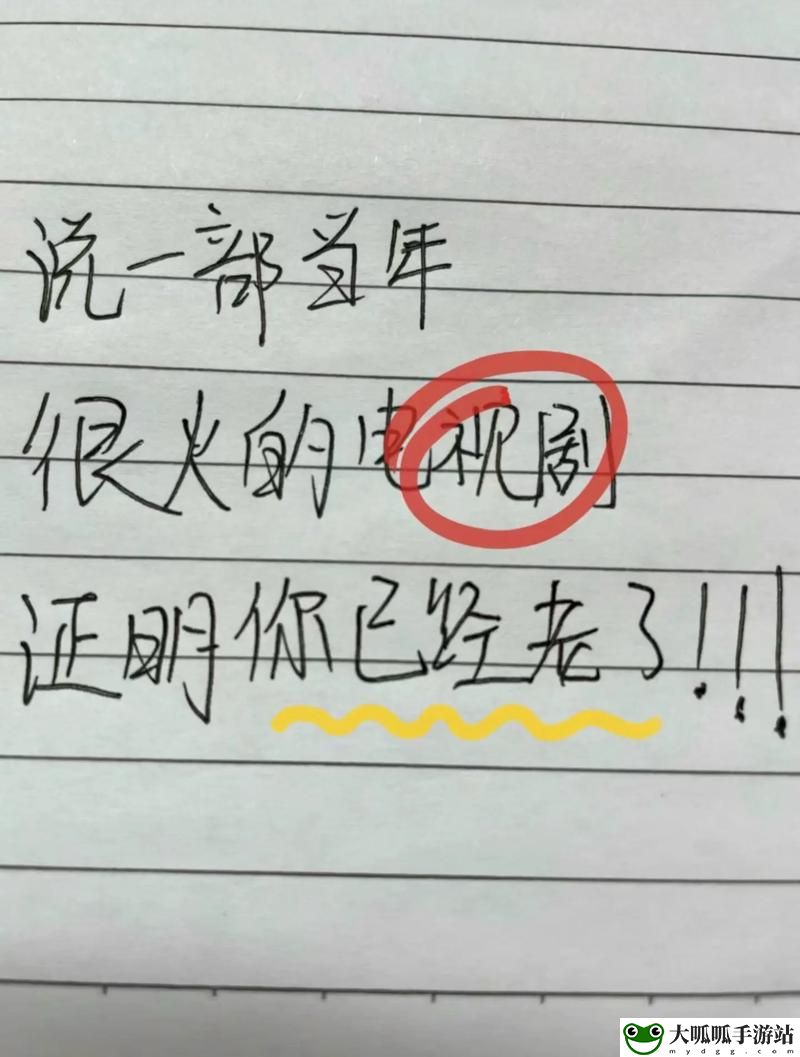 说一部当年
很火的电视剧
证明你已经老了!!!
大呱呱手游站
mydgg.com